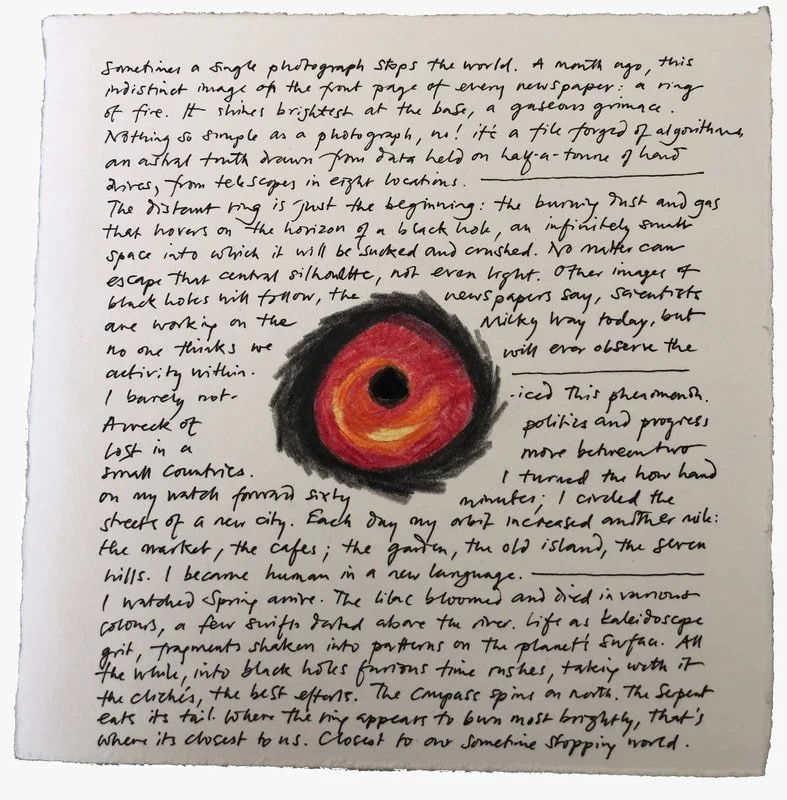 Sometimes a single photograph stops the world. A month ago, this
indistinct image on the front page of every newspaper: a ring
of fire. It shines brightest at the base, a gaseous grimace.
Nothing so simple as a photograph, no! it's a file forged of algorithms,
an astral truth drawn from data held on half-a-tonne of hard
drives, from telescopes in eight locations.
The distant ring is just the beginning: the burning dust and gas
that hovers on the horizon of a black hole, an infinitely small
space into which it will be sucked and crushed. No matter can
escape that central silhouette, not even light. Other images of
black holes will follow, the newspapers say, scientists
are working on the Milky Way today, but
no one thinks we will ever observe the
activity within.
I barely not- -iced this phenomenon.
A week of politics and progress
lost in a move between two
small countries. I turned the hour hand
on my watch forward sixty minutes; I circled the
streets of a new city. Each day my orbit increased another mile:
the market, the cafes; the garden, the old island, the seven
hills. I became human in a new language.
I watched Spring arrive. The lilac bloomed and died in various
colours, a few swifts darted above the river. Life as kaleidoscope
grit, fragments shaken into patterns on the planet's surface. All
the while, into black holes furious time rushes, taking with it
the clichés, the best efforts. The compass spins on north. The serpent
eats its tail. Where the ring appears to burn most brightly, that's
where its closest to us. Closest to our sometime stopping world.